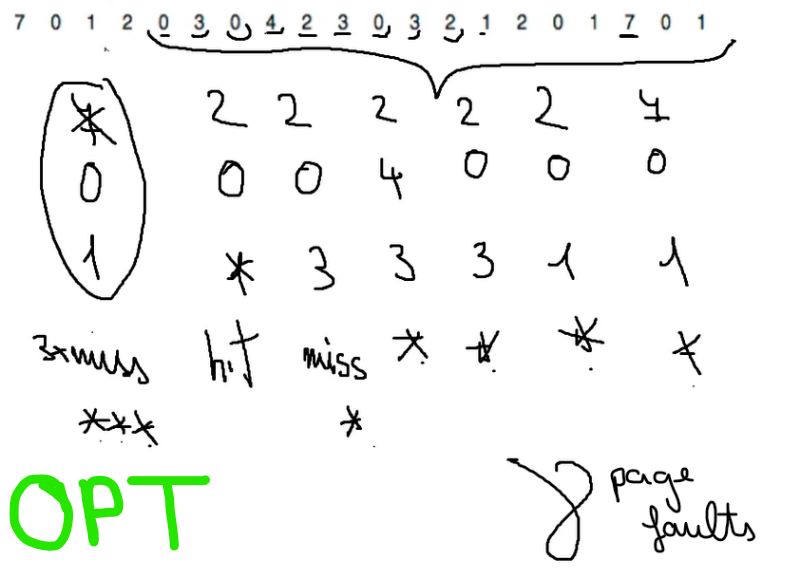 7 0 1 2 0 3 0 4 2 3 0 3 2 1 2 0 1 7 0 1
7 2 2 2 2 2 7
0 0 0 4 0 0 0
1 * 3 3 3 1 1
3xmiss hit miss * * * *
*** *
OPT 8 page
faults